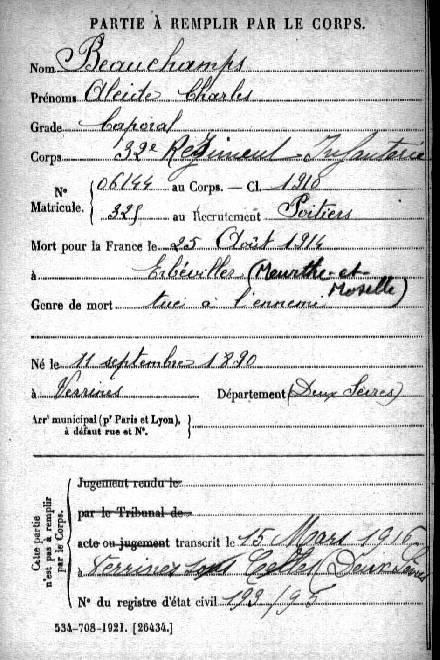 PARTIE À REMPLIR PAR LE CORPS.
Nom Beauchamps
Prénoms Alcide Charles
Grade Caporal
Corps 32e Régiment Infanterie
N° Matricule. { 06144 au Corps. — Cl. 1910
325 au Recrutement Poitiers
Mort pour la France le 25 Août 1914
à Erbéviller (Meurthe-et-Moselle)
Genre de mort tué à l'ennemi
Né le 11 septembre 1890
à Verrines Département (Deux Sèvres)
Arrt municipal (pr Paris et Lyon), à défaut rue et N°. }
Cette partie n'est pas à remplir par le Corps.
Jugement rendu le
par le Tribunal de
acte ou jugement transcrit le 15 Mars 1916
à Verrines sous Celles (Deux Sèvres
N° du registre d'état civil 199/95
534-708-1921. [26434.]